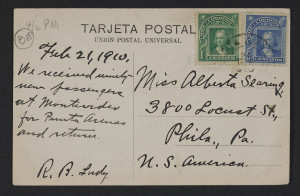 TARJETA POSTAL
UNION POSTAL UNIVERSAL
Feb 21, 1910.
We received ninety-
new passengers
at Montevideo
for Punta Arenas
and return.
R. B. Lady
Miss Alberta Searing
3800 Locust St.,
Phila., Pa.
U. S. America.